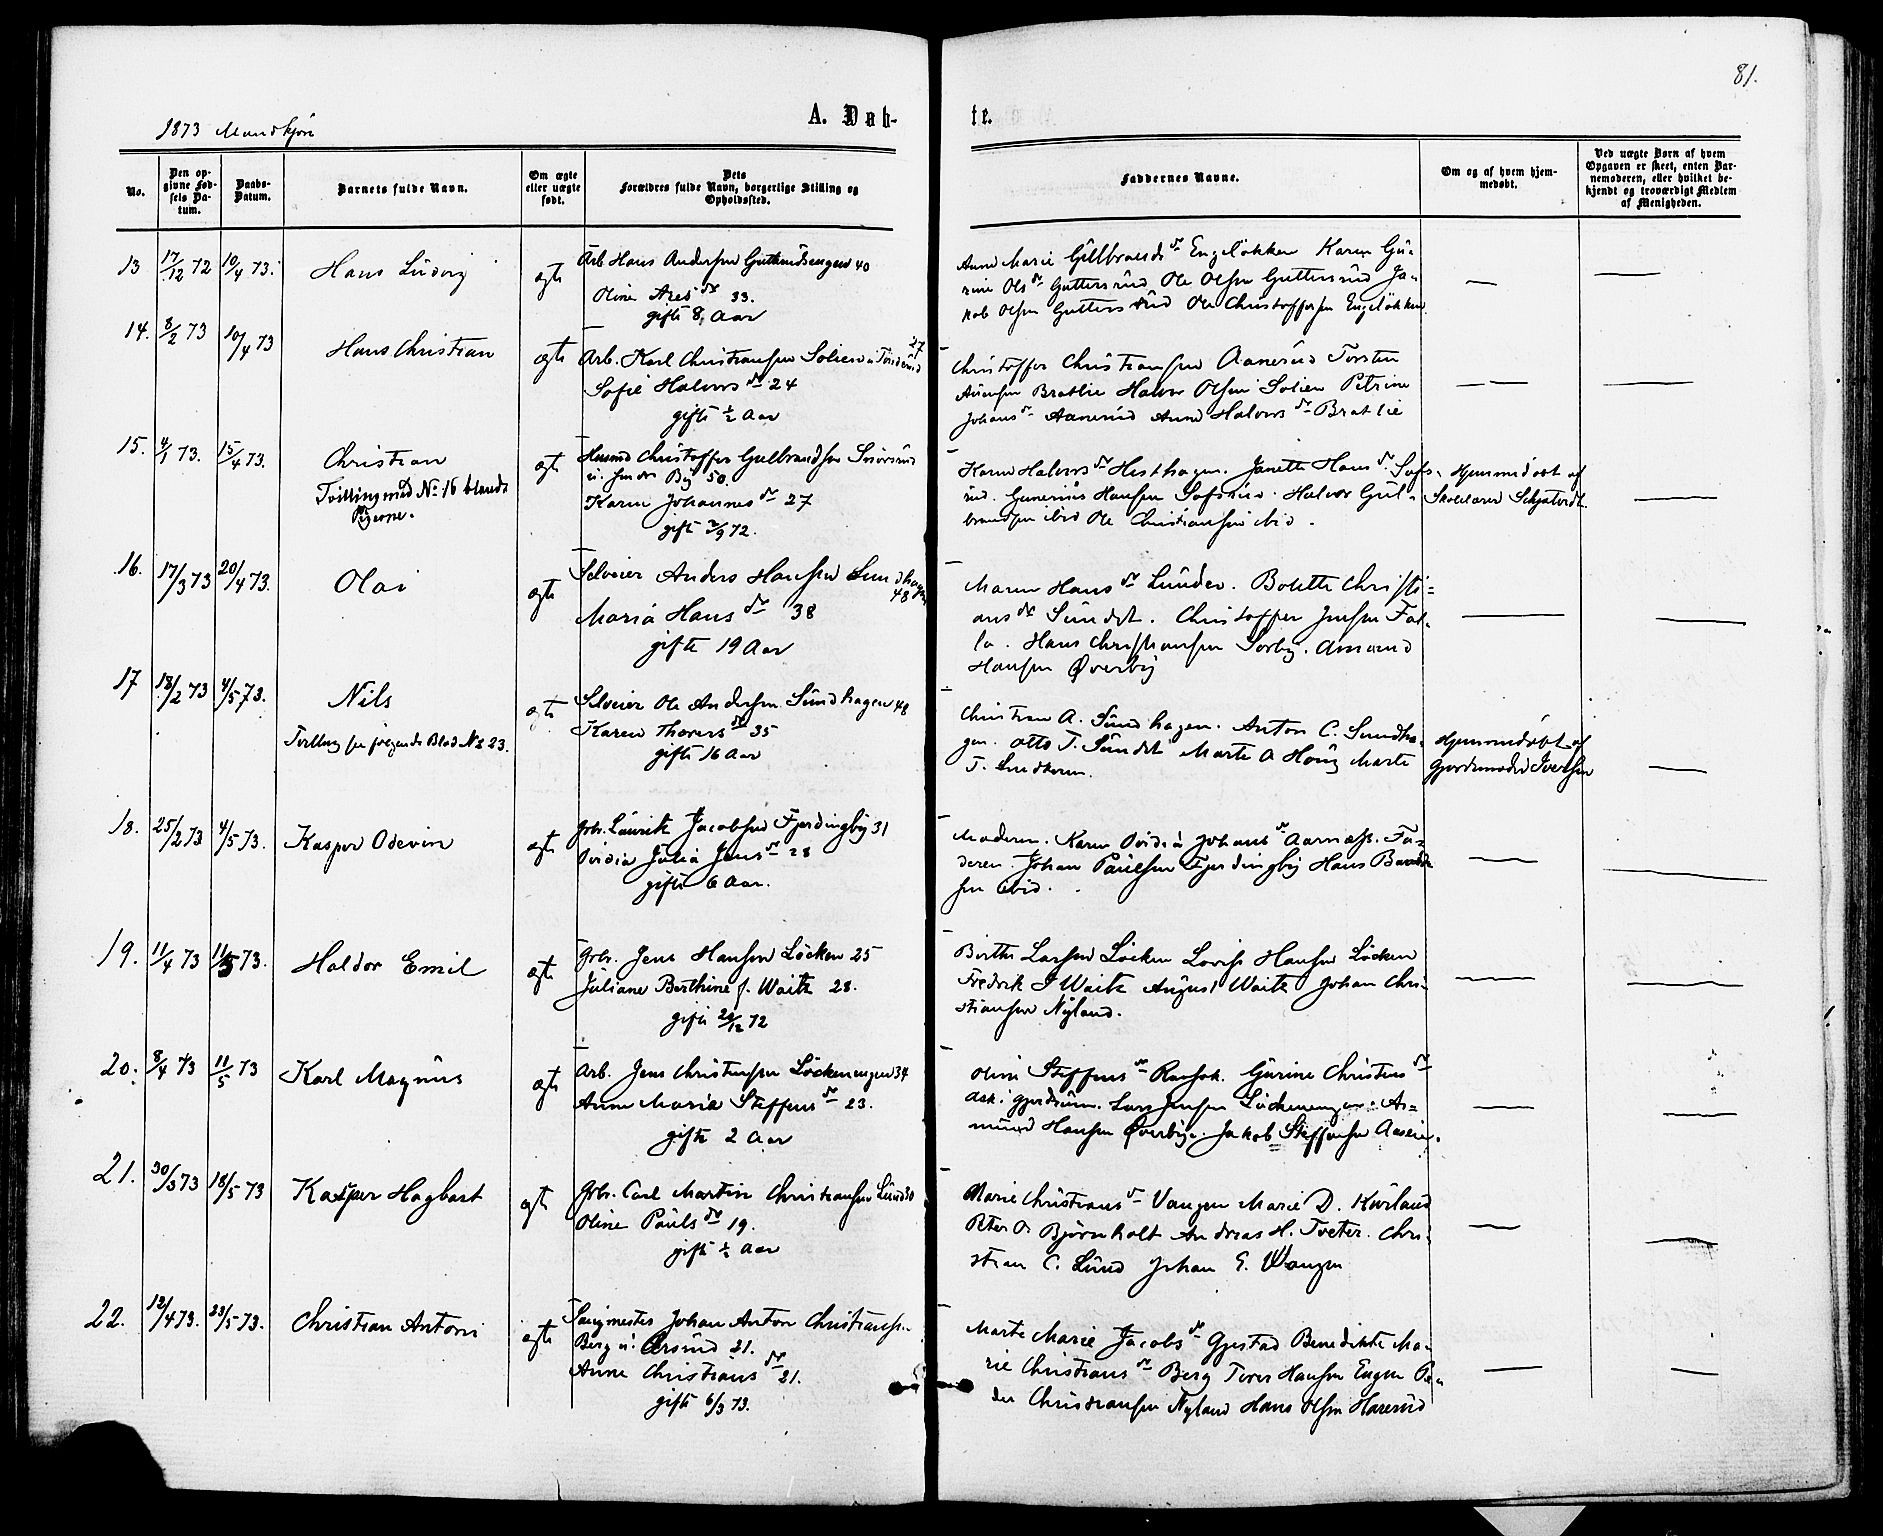 81.
1873 Mandkjøn
A. Døbte.
No.
Den opgivne Fødsels Datum.
Daabs-Datum.
Barnets fulde Navn.
Om ægte eller uægte født.
Dets Forældres fulde Navn, borgerlige Stilling og Opholdssted.
Faddernes Navne.
Om og af hvem hjemmedøbt.
Ved uægte Børn af hvem Opgaven er skeet, enten Barnemoderen, eller hvilket bekjendt og troværdigt Medlem af Menigheden.
13 17/12 72 10/4 73. Hans Ludvig ægte
Arb. Hans Andersen Guttersrudengen 40
Oline Ares dr 33.
gifte 8 Aar
Anne Marie Gulbrands dr Engeløkken Karen Gu-
rine Ols dr Guttersrud Ole Olsen Guttersrud Ja-
kob Olsen Guttersrud Ole Christoffersen Engeløkken
14. 8/2 73 10/4 73 Hans Christian ægte
Arb. Karl Christiansen Solien 27
Sofie Halvors dr 24
gifte 1/2 Aar
Christoffer Christiansen Aanerud Torsten
Bratlie Halvor Olsen Solien Petrine
Johans dr Aanerud Anne Halvors dr Bratlie
15. 4/1 73. 15/4 73. Christian ægte
Tvilling med No 16 blandt
Pigerne.
Husmd Christoffer Gulbrandsen
By 50.
Karen Johannes dr 27
gift 2/9 72.
Karen Halvors dr Hesthagen. Janette Hans dr Sofs-
rud. Hansen Sofsrud. Halvor Gul-
brandsen ibid Ole Christiansen ibid.
Hjemmedøbt af
Skolelærer
16. 17/3 73 20/4 73. Olai ægte
Selveier Anders Hansen Sundhagen 48
Maria Hans dr 38
gifte 19 Aar
Maren Hans dr Lunder. Bolette Christi-
ans dr Sundet. Christoffer Jensen Fal-
la. Hans Christiansen Sorby. Amund
Hansen Øverby
17 18/2 73 4/5 73. Nils ægte
Tvilling se følgende Blad No 23.
Selveier Ole Andersen Sundhagen 48
Karen Thorers dr 35
gifte 16 Aar
Christian A. Sundhagen. Anton C. Sundha-
gen. Otto T. Sundet Marte A Marte
T.
Hjemmedøbt af
Gjordemoder Iversen
18. 25/2 73 4/5 73. Kasper Odevin ægte
Gbr. Lauritz Jacobsen Fjerdingby 31
Ovidia Julia Jens dr 28
gifte 6 Aar.
Moderen. Karen Ovidia Johans dr Aarnæs. Fa-
deren Johan Paulsen Fjerdingby Hans
sen ibid.
19. 11/4 73 11/5 73. Haldor Emil ægte
Gbr. Jens Hansen Løcken 25
Juliane Berthine f. Waitz 28.
gifte 28/12 72
Birthe Larsen Løcken Lovise Hansen Løcken
Fredrik I Waitz August Waitz Johan Chri-
stiansen Nyland.
20. 8/4 73 11/5 73 Karl Magnus ægte
Arb. Jens Christensen Løckenengen 34
Anne Maria Steffens dr 23.
gifte 2 Aar
Oline Steffens dr Gurine Christens dr
Ask i Gjerdrum. Lars Jensen Løckenengen. As-
mund Hansen Øverbye. Jakob Steffensen
21. 30/3 73 18/5 73 Kasper Hagbart ægte
Gbr. Carl Martin Christiansen Lund 30
Oline Pauls dr 19.
gifte 1/2 Aar
Marie Christians dr Vangen Marie D. Kurland
Peter O. Bjørnholt Andreas H. Tveter. Chri-
stian C. Lund Johan E. Wangen
22. 12/4 73. 23/5 73. Christian Anton ægte
Sangmester Johan Anton Christiansen
Berg 21.
Anne Christians dr 21.
gifte 6/3 73.
Marte Marie Jacobs dr Gjestad Benedikte Ma-
rie Christians dr Berg Hansen Engen Pe-
der Christiansen Nyland Hans Olsen Harerud